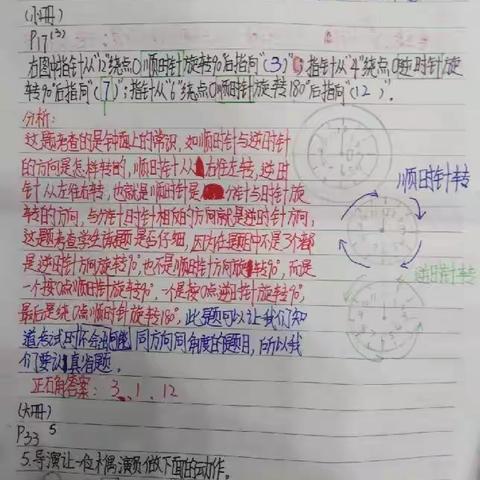 (小册)
P17(3)
右图中指针从"12"绕点O顺时针旋转90°后指向"(3)";指针从"4"绕点O逆时针旋
转90°后指向"(7)";指针从"6"绕点O顺时针旋转180°后指向"(12)".
分析:
这题考查的是钟面上的常识,如顺时针与逆时针
的方向是怎样转的,顺时针从右往左转,逆时
针从左往右转,也就是顺时针是分针与时针旋
转的方向,与分针时针相反的方向就是逆时针方向,
这题考查学生读题是否仔细,因为在题中不是3个都
是逆时针方向旋转90°,也不是顺时针方向旋转90°,而是
一个按O点顺时针旋转90°,一个是按O点逆时针旋转90°,
最后是绕O点顺时针旋转180°,此题可以让我们知
道考试时不会出同方向同角度的题目,所以我
们要认真省题。
正确答案:3、1、12
顺时针转
逆时针转
(大册)
P33 5
5.导演让一位木偶演员做下面的动作。